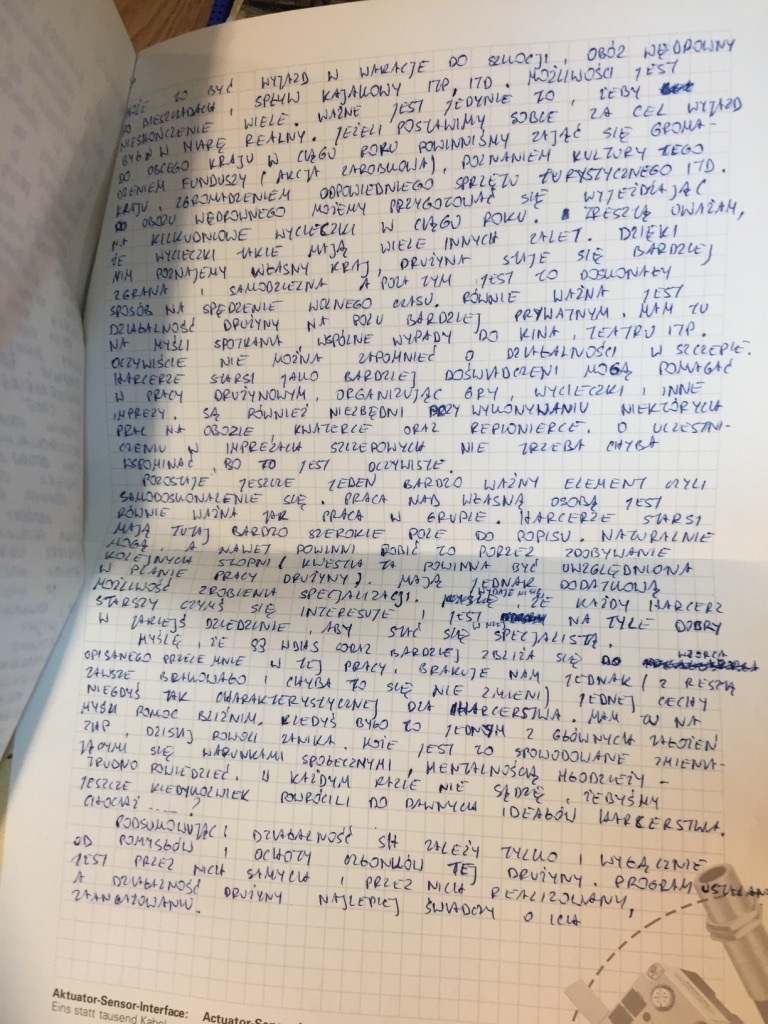 MOŻE TO BYĆ WYJAZD W WAKACJE DO SZKOCJI, OBÓZ WĘDROWNY
PO BIESZCZADACH, SPŁYW KAJAKOWY ITP, ITD. MOŻLIWOŚCI JEST
NIESKOŃCZENIE WIELE. WAŻNE JEST JEDYNIE TO, ŻEBY
BYŁ W MIARĘ REALNY. JEŻELI POSTAWIMY SOBIE ZA CEL WYJAZD
DO OBCEGO KRAJU W CIĄGU ROKU POWINNIŚMY ZAJĄĆ SIĘ GROMA-
DZENIEM FUNDUSZY (AKCJA ZAROBKOWA), POZNANIEM KULTURY TEGO
KRAJU, ZGROMADZENIEM ODPOWIEDNIEGO SPRZĘTU TURYSTYCZNEGO ITD.
DO OBOZU WĘDROWNEGO MOŻEMY PRZYGOTOWAĆ SIĘ WYJEŻDŻAJĄC
NA KILKUDNIOWE WYCIECZKI W CIĄGU ROKU. ZRESZTĄ UWAŻAM,
ŻE WYCIECZKI TAKIE MAJĄ WIELE INNYCH ZALET. DZIĘKI
NIM POZNAJEMY WŁASNY KRAJ, DRUŻYNA STAJE SIĘ BARDZIEJ
ZGRANA I SAMODZIELNA A POZA TYM JEST TO DOSKONAŁY
SPOSÓB NA SPĘDZENIE WOLNEGO CZASU. RÓWNIE WAŻNA JEST
DZIAŁALNOŚĆ DRUŻYNY NA POLU BARDZIEJ PRYWATNYM. MAM TU
NA MYŚLI SPOTKANIA, WSPÓLNE WYPADY DO KINA, TEATRU ITP.
OCZYWIŚCIE NIE MOŻNA ZAPOMNIEĆ O DZIAŁALNOŚCI W SZCZEPIE.
HARCERZE STARSI JAKO BARDZIEJ DOŚWIADCZENI MOGĄ POMAGAĆ
W PRACY DRUŻYNOWYM, ORGANIZUJĄC GRY, WYCIECZKI, INNE
IMPREZY. SĄ RÓWNIEŻ NIEZBĘDNI PRZY WYKONYWANIU NIEKTÓRYCH
PRAC NA OBOZIE, KWATERCE ORAZ REPIONIERCE. O UCZESTNI-
CZENIU W IMPREZACH SZCZEPOWYCH NIE TRZEBA CHYBA
WSPOMINAĆ, BO TO JEST OCZYWISTE.
POZOSTAJE JESZCZE JEDEN BARDZO WAŻNY ELEMENT CZYLI
SAMODOSKONALENIE SIĘ. PRACA NAD WŁASNĄ OSOBĄ JEST
RÓWNIE WAŻNA JAK PRACA W GRUPIE. HARCERZE STARSI
MAJĄ TUTAJ BARDZO SZEROKIE POLE DO POPISU. NATURALNIE
MOGĄ, A NAWET POWINNI ROBIĆ TO POPRZEZ ZDOBYWANIE
KOLEJNYCH STOPNI (KWESTIA TA POWINNA BYĆ UWZGLĘDNIONA
W PLANIE PRACY DRUŻYNY). MAJĄ JEDNAK DODATKOWĄ
MOŻLIWOŚĆ ZROBIENIA SPECJALIZACJI. WYDAJE MI SIĘ, ŻE KAŻDY HARCERZ
STARSZY CZYMŚ SIĘ INTERESUJE I JEST NA TYLE DOBRY
W JAKIEJŚ DZIEDZINIE, ABY STAĆ SIĘ W NIEJ SPECJALISTĄ.
MYŚLĘ, ŻE 93 WDHS CORAZ BARDZIEJ ZBLIŻA SIĘ DO WZORCA
OPISANEGO PRZEZE MNIE W TEJ PRACY. BRAKUJE NAM JEDNAK (ZRESZTĄ
ZAWSZE BRAKOWAŁO I CHYBA TO SIĘ NIE ZMIENI) JEDNEJ CECHY
NIEGDYŚ TAK CHARAKTERYSTYCZNEJ DLA HARCERSTWA. MAM TU NA
MYŚLI POMOC BLIŹNIM. KIEDYŚ BYŁO TO JEDNYM Z GŁÓWNYCH ZAŁOŻEŃ
ZHP, DZISIAJ POWOLI ZANIKA. MOŻE JEST TO SPOWODOWANE ZMIENIA-
JĄCYMI SIĘ WARUNKAMI SPOŁECZNYMI, MENTALNOŚCIĄ MŁODZIEŻY -
TRUDNO POWIEDZIEĆ. W KAŻDYM RAZIE NIE SĄDZĘ, ŻEBYŚMY
JESZCZE KIEDYKOLWIEK POWRÓCILI DO DAWNYCH IDEAŁÓW HARCERSTWA.
CHOCIAŻ ......?
PODSUMOWUJĄC: DZIAŁALNOŚĆ SH ZALEŻY TYLKO I WYŁĄCZNIE
OD POMYSŁÓW I OCHOTY CZŁONKÓW TEJ DRUŻYNY. PROGRAM USTALANY
JEST PRZEZ NICH SAMYCH I PRZEZ NICH REALIZOWANY,
A DZIAŁALNOŚĆ DRUŻYNY NAJLEPIEJ ŚWIADCZY O ICH
ZAANGAŻOWANIU.
Aktuator-Sensor-Interface:
Eins statt tausend Kabel